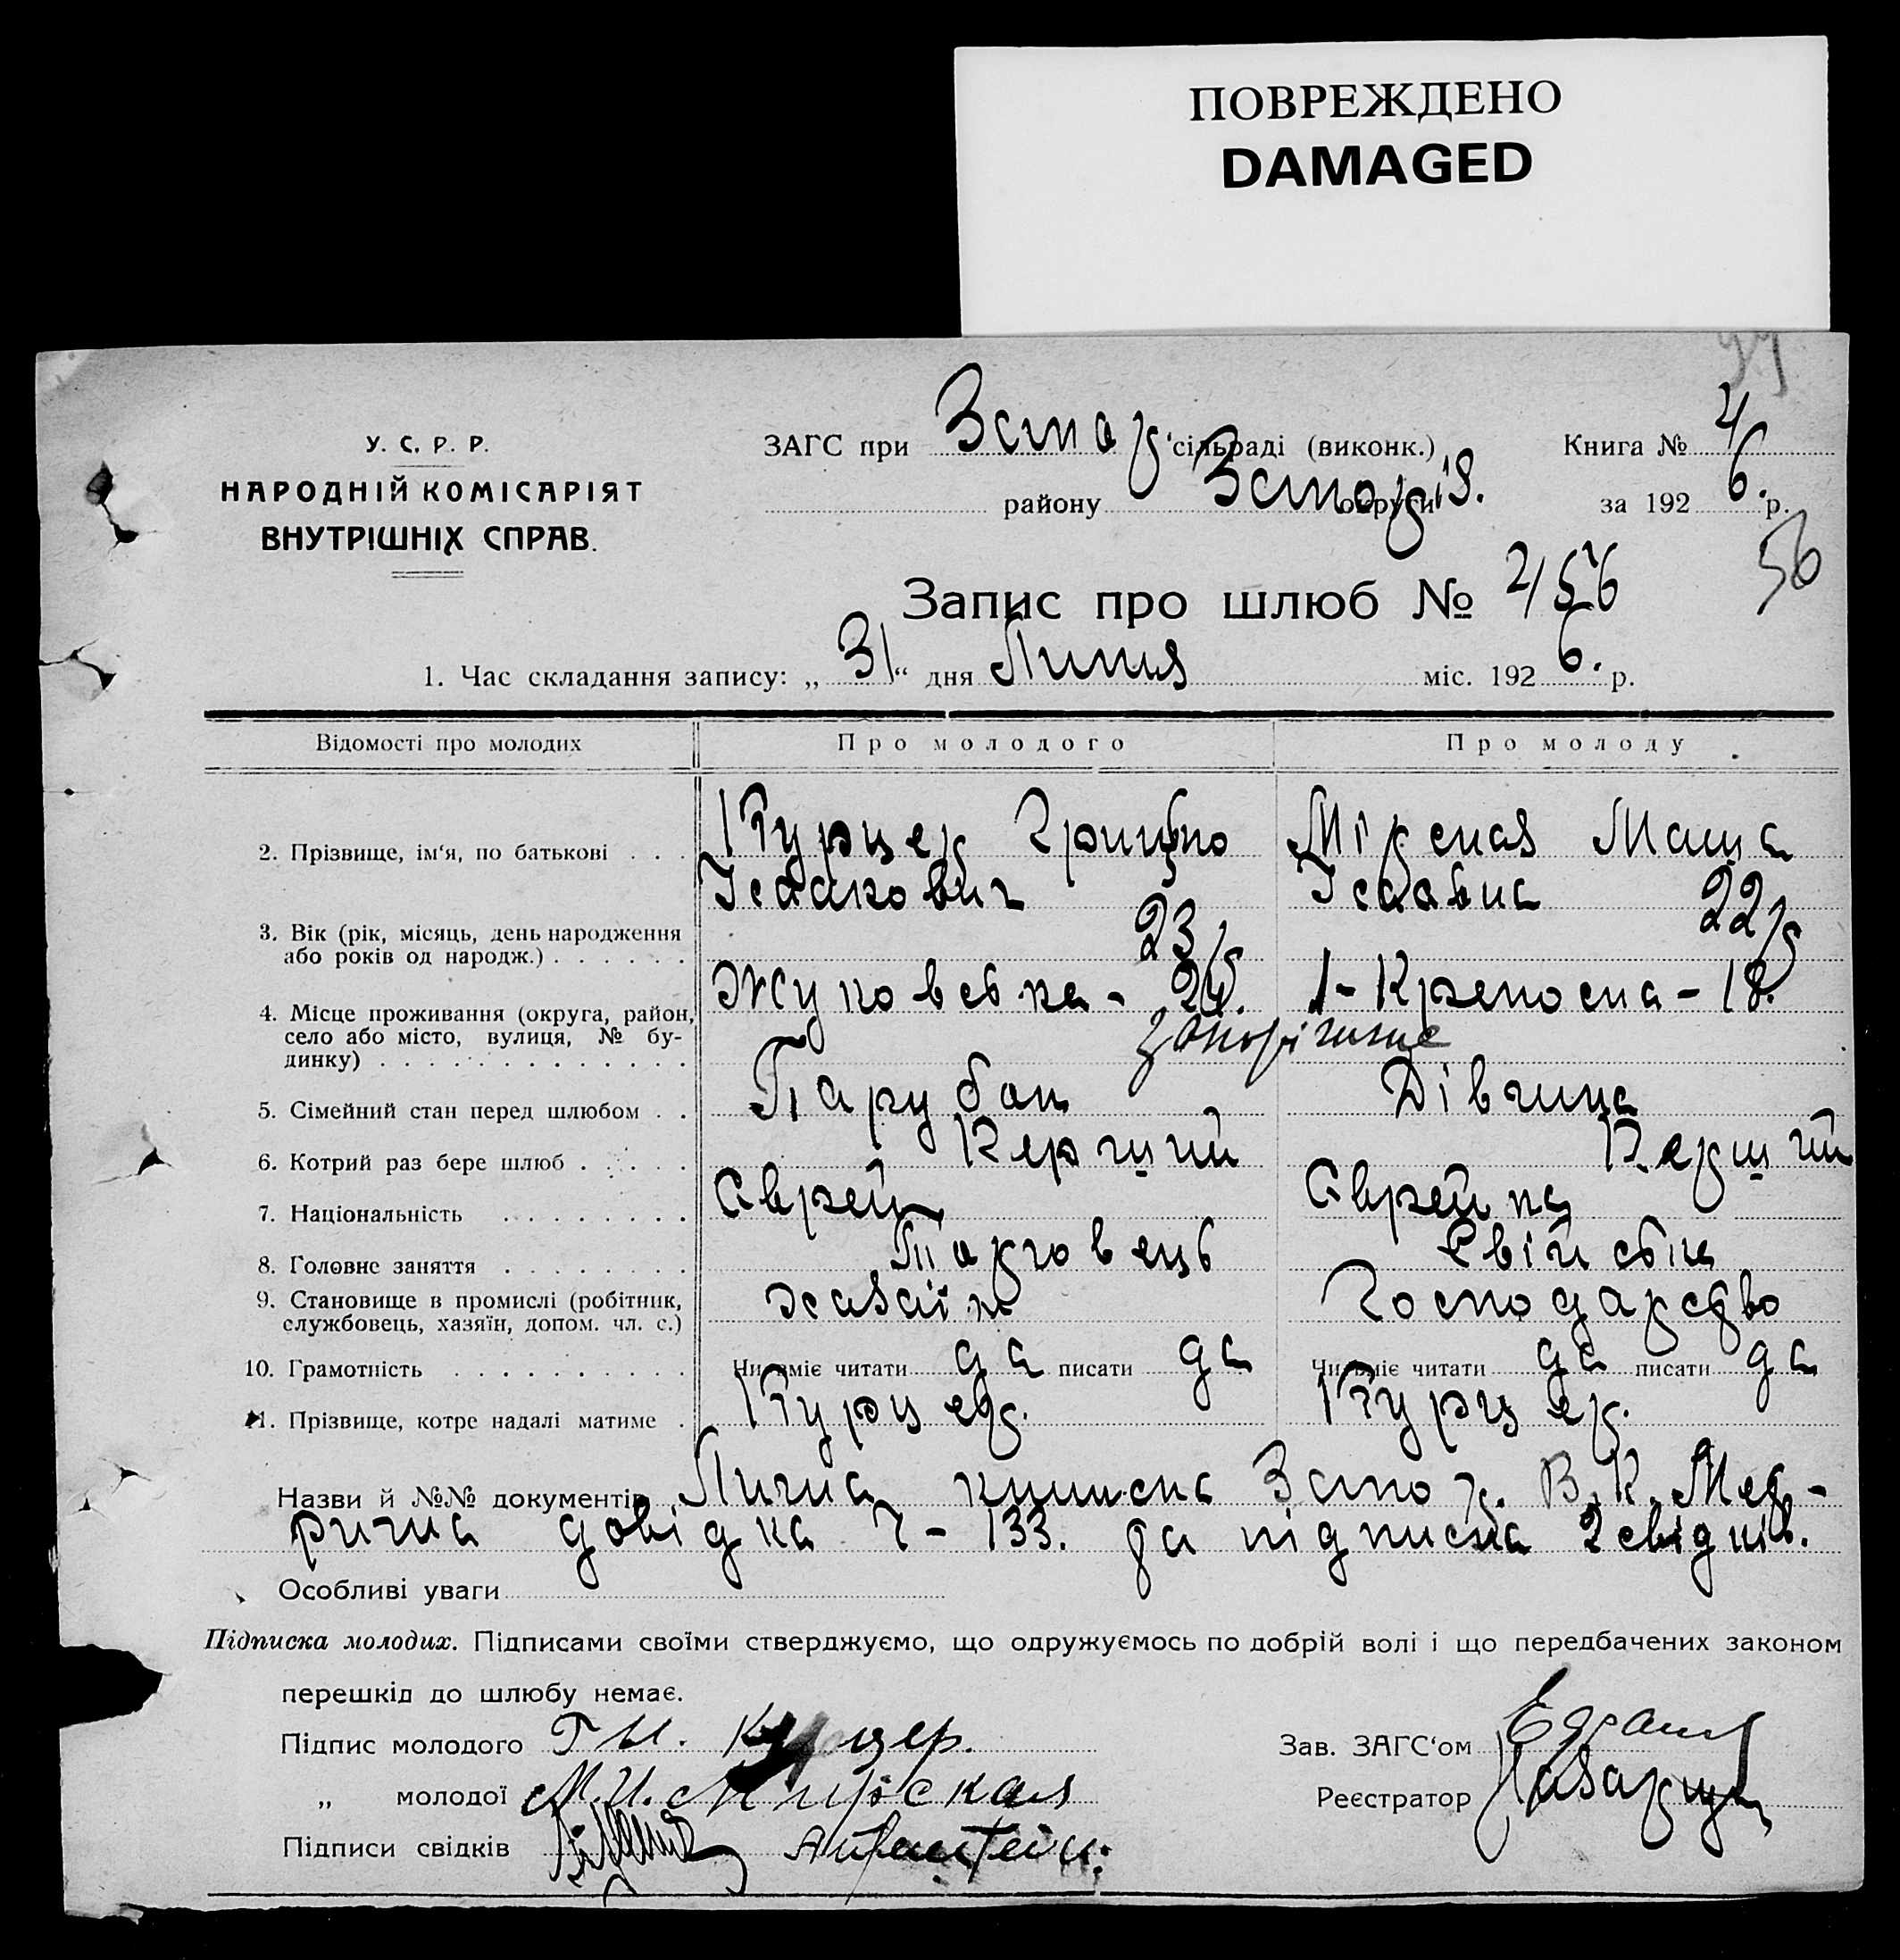 ПОВРЕЖДЕНО
DAMAGED
У. С. Р. Р.
НАРОДНІЙ КОМІСАРІЯТ
ВНУТРІШНІХ СПРАВ.
ЗАГС при Запор. сільраді (виконк.)
Книга № 4
району Запоріз. округи
за 192 6. р.
56
Запис про шлюб №
1. Час складання запису: „ 31 “ дня Липня міс. 192 6. р.
Відомості про молодих
Про молодого
Про молоду
2. Прізвище, ім‘я, по батькові . . .
Курцер Грицько
Ісаакович
Мірская Маша
Ісаавна
3. Вік (рік, місяць, день народження
або років од народж.) . . . . . .
23/5
22/5
4. Місце проживання (округа, район,
село або місто, вулиця, № бу-
динку) . . . . . . . . . . . . .
Жуковська - 24.
1-Крепосна - 18.
Запоріжжє
5. Сімейний стан перед шлюбом . .
Парубок
Дівчина
6. Котрий раз бере шлюб . . . . .
Перший
Перший
7. Національність . . . . . . . .
Єврей
Єврейка
8. Головне заняття . . . . . . . .
Торговець
Свійське
9. Становище в промислі (робітник,
службовець, хазяїн, допом. чл. с.)
хазаїн
Господарство
10. Грамотність . . . . . . . . . .
Чи вміє читати да писати да
Чи вміє читати да писати да
11. Прізвище, котре надалі матиме .
Курцер.
Курцер.
Назви й №№ документів Лична книжка Запор. В.К. Мед-
рична довідка Ч - 133. да підписка 2 свідків.
Особливі уваги
Підписка молодих. Підписами своїми стверджуємо, що одружуємось по добрій волі і що передбачених законом
перешкід до шлюбу немає.
Підпис молодого Г И. Курцер.
Зав. ЗАГС‘ом
„ молодої М.И. Мирская
Реєстратор
Підписи свідків